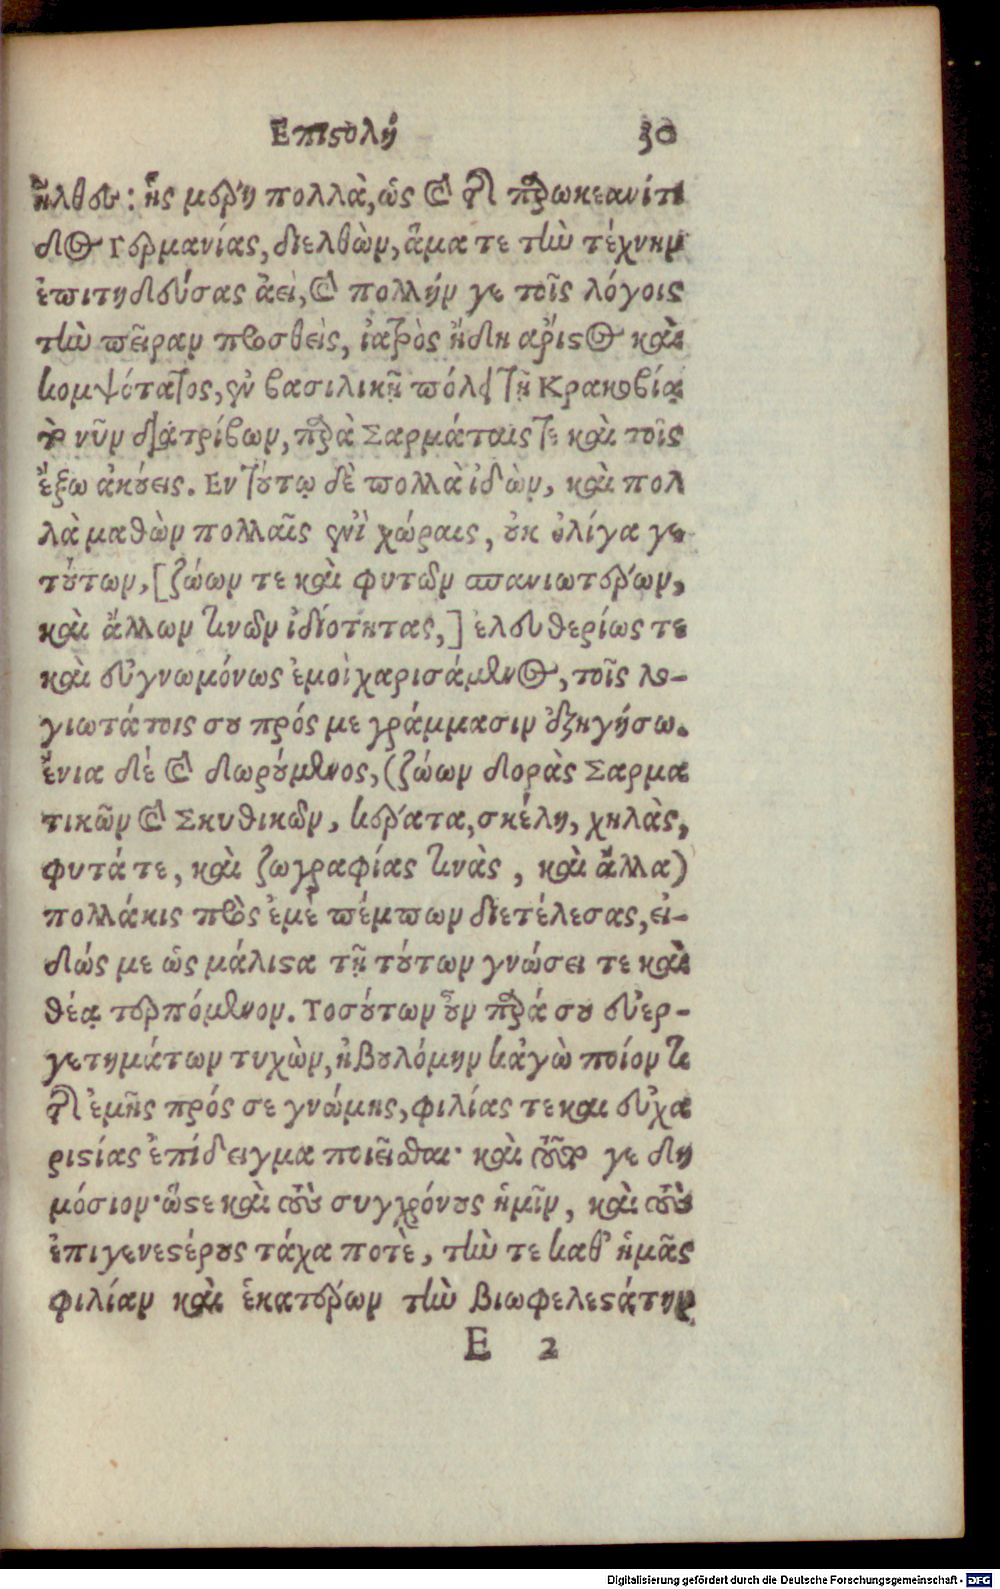 Επιστολή 30
ἦλθεν: ἧς μέρη πολλὰ, ὡς καὶ τῆς παρωκεανίτι
δος Γερμανίας, διελθὼν, ἅμα τε τὴν τέχνην
ἐπιτηδεύσας ἀεὶ, καὶ πολλήν γε τοῖς λόγοις
τὴν πεῖραν προσθεὶς, ἰατρὸς ἤδη ἄριστος καὶ
κομψότατος, ἐν βασιλικῇ πόλει τῇ Κρακοβίᾳ
τὸ νῦν διατρίβων, παρὰ Σαρμάταις τε καὶ τοῖς
ἔξω ἀκούεις. Εν τούτῳ δὲ πολλὰ ἰδὼν, καὶ πολ
λὰ μαθὼν πολλαῖς ἐνὶ χώραις, οὐκ ὀλίγα γε
τούτων, [ζώων τε καὶ φυτῶν σπανιωτέρων,
καὶ ἄλλων τινῶν ἰδιότητας,] ἐλευθερίως τε
καὶ εὐγνωμόνως ἐμοὶ χαρισάμενος, τοῖς λο-
γιωτάτοις σου πρός με γράμμασιν ἐξηγήσω.
ἔνια δέ καὶ δωρούμενος, (ζώων δορὰς Σαρμα
τικῶν καὶ Σκυθικῶν, κέρατα, σκέλη, χηλὰς,
φυτά τε, καὶ ζωγραφίας τινὰς, καὶ ἄλλα)
πολλάκις πρὸς ἐμὲ πέμπων διετέλεσας, εἰ-
δώς με ὡς μάλιστα τῇ τούτων γνώσει τε καὶ
θέᾳ τερπόμενον. Τοσούτων οὖν παρά σου εὐερ-
γετημάτων τυχὼν, ἠβουλόμην κἀγὼ ποίον τι
τῆς ἐμῆς πρός σε γνώμης, φιλίας τε και εὐχα
ριστίας ἐπίδειγμα ποιεῖσθαι· καὶ τοῦτό γε δη
μόσιον· ὥστε καὶ τοὺς συγχρόνους ἡμῖν, καὶ τοὺς
ἐπιγενεστέρους τάχα ποτὲ, τὴν τε καθ' ἡμᾶς
φιλίαν καὶ ἑκατέρων τὴν βιωφελεστάτην
E 2
Digitalisierung gefördert durch die Deutsche Forschungsgemeinschaft - DFG